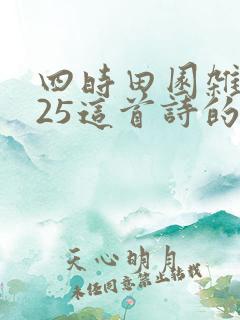 四時田園雜
25這首詩的
天心明月
未经同意禁止转载